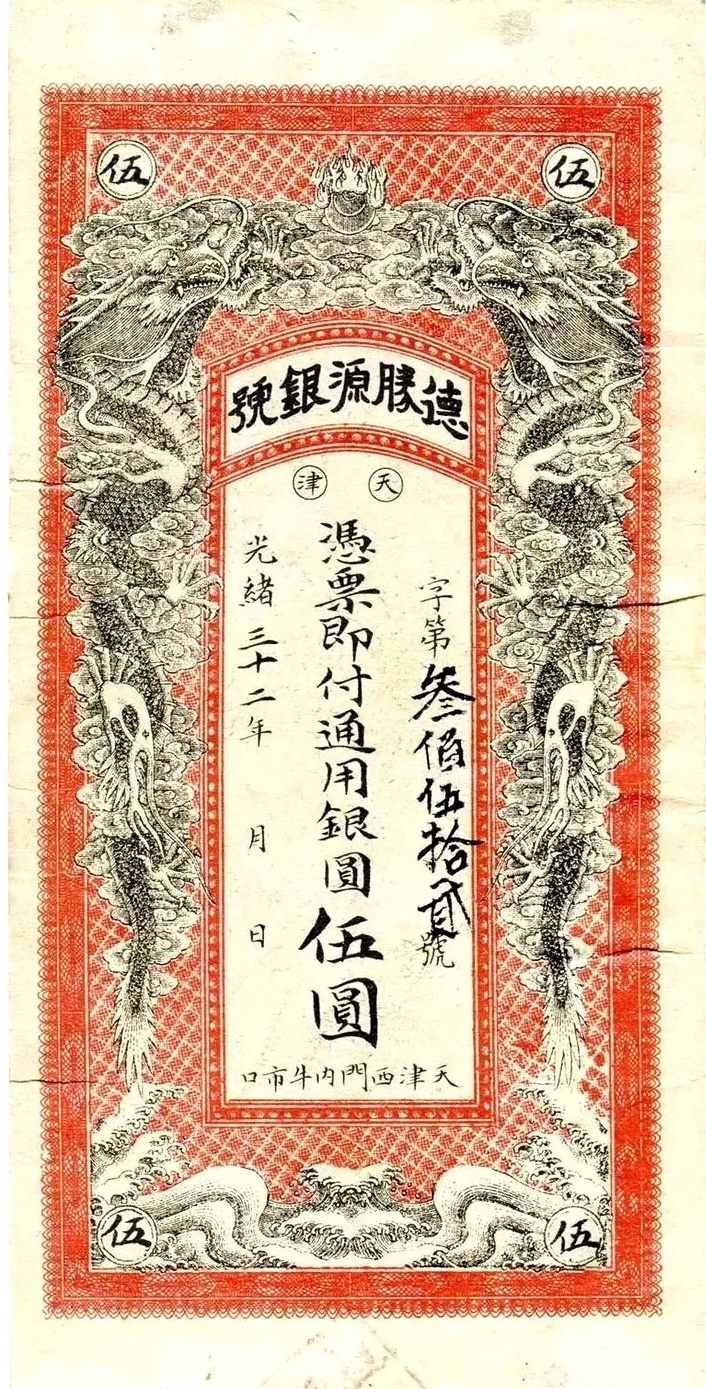 伍
伍
德勝源銀號
天津
字第叁佰伍拾貳號
憑票即付通用銀圓伍圓
光緒三十二年 月 日
天津西門內牛市口
伍
伍